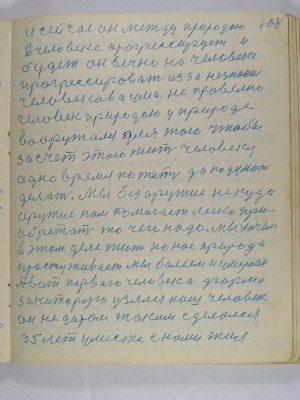 и сейчас он между природою 108
в человеке прогрессирует и
будет он вечно но человеке
прогрессироват из за незнание
человекова ума не правелно
человек природою у природе
вооружался для того чтобы
за счет этого жить человеку
одно время пожить да подумат
делат. Мы без аружие не куда
аружие нам помагает легко при-
обретат то чего надо мы хочем
в этом деле жить но нас природа
простуживает мы болеем и умираем
А вот первого человека форма
за которого узялся наш человек
он не даром таким сделался
35 лет уместе с ними жил